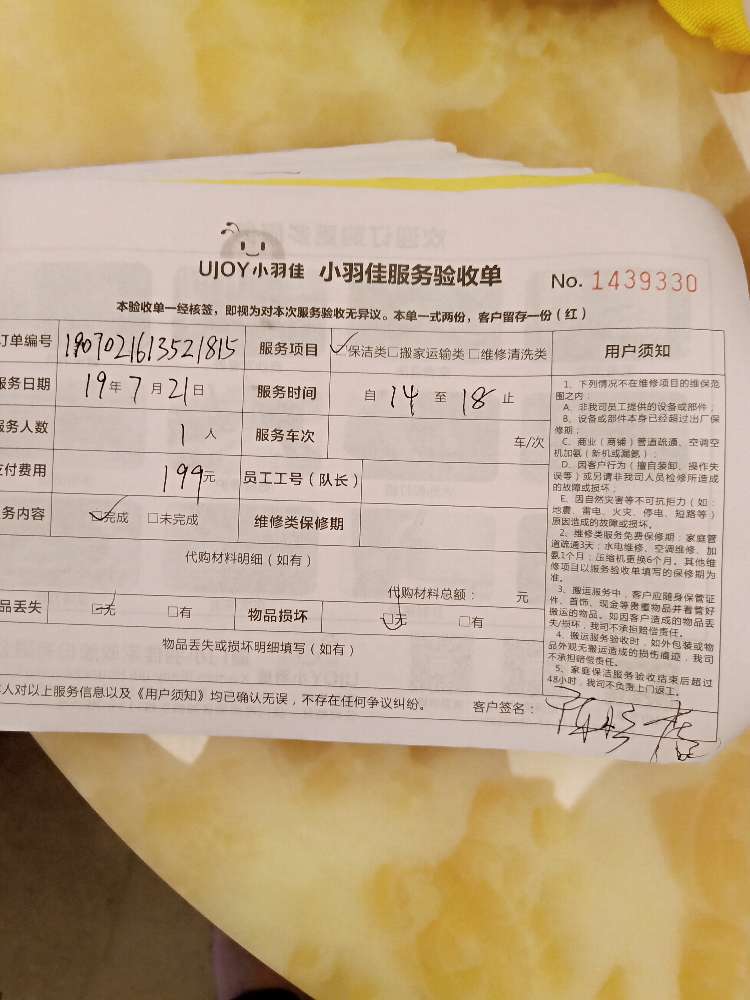 UJOY小羽佳 小羽佳服务验收单 No. 1439330
本验收单一经核签，即视为对本次服务验收无异议。本单一式两份，客户留存一份（红）
订单编号 190702161352181​5 服务项目 ☑保洁类□搬家运输类 □维修清洗类 用户须知
服务日期 19年7月21日 服务时间 自 14 至 18 止
服务人数 1 人 服务车次 车/次
支付费用 199元 员工工号（队长）
服务内容 ☑完成 □未完成 维修类保修期
代购材料明细（如有）
代购材料总额： 元
物品丢失 ☑无 □有 物品损坏 ☑无 □有
物品丢失或损坏明细填写（如有）
本人对以上服务信息以及《用户须知》均已确认无误，不存在任何争议纠纷。 客户签名：
1、下列情况不在维修项目的维保范
围之内：
A、非我司员工提供的设备或部件；
B、设备或部件本身已经超过出厂保
修期；
C、商业（商铺）管道疏通、空调空
机加氨（新机或漏氨）；
D、因客户行为（擅自装卸、操作失
误等）或另请非我司人员检修所造成
的故障或损坏；
E、因自然灾害等不可抗拒力（如：
地震、雷电、火灾、停电、短路等）
原因造成的故障或损坏。
2、维修类服务免费保修期：家庭管
道疏通3天；水电维修、空调维修、加
氨1个月；压缩机更换6个月。其他维
修项目以服务验收单填写的保修期为
准。
3、搬运服务中，客户应随身保管证
件、首饰、现金等贵重物品并看管好
搬运的物品。如因客户造成的物品丢
失/损坏，我司不承担赔偿责任。
4、搬运服务验收时，如外包装或物
品外观无搬运造成的损伤痕迹，我司
不承担赔偿责任。
5、家庭保洁服务验收结束后超过
48小时，我司不负责上门返工。